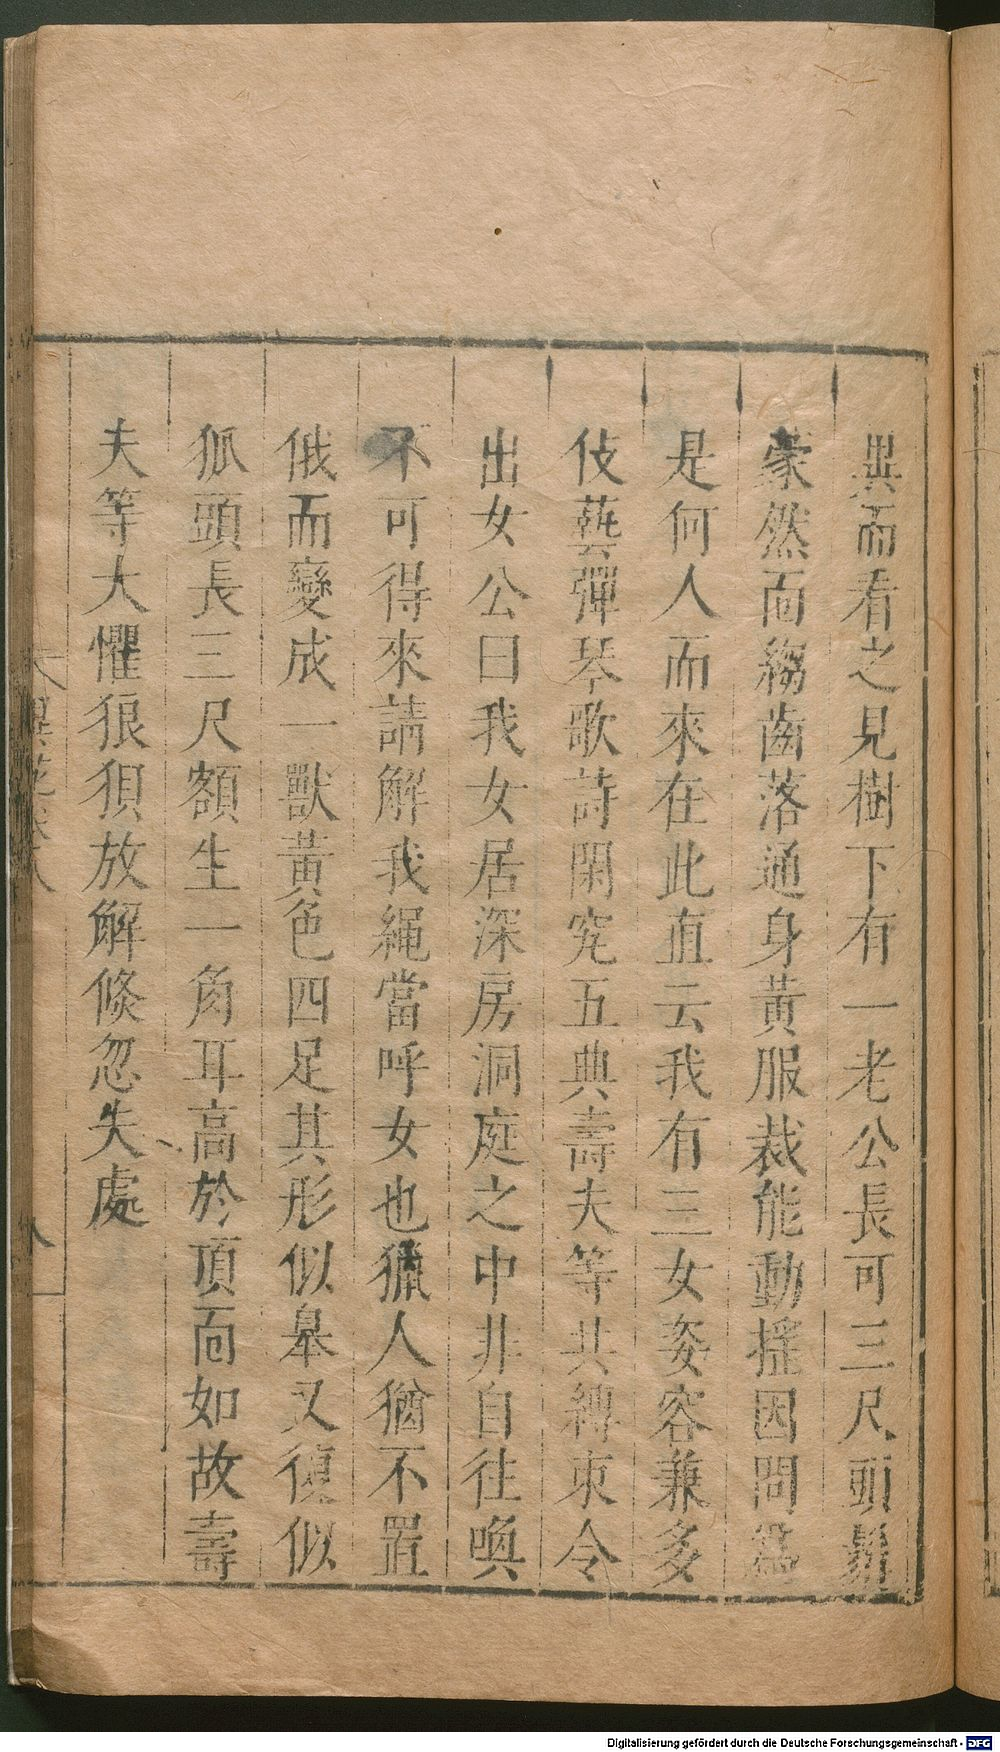 異而看之見樹下有一老公長可三尺頭鬚
蒙然面縐齒落通身黃服裁能動揺因問為
是何人而來在此直云我有三女姿容兼多
伎藝彈琴歌詩閑究五典壽夫等共縛束令
出女公曰我女居深房洞庭之中非自往喚
不可得來請解我繩當呼女也獵人猶不置
俄而變成一獸黃色四足其形似皋又復似
狐頭長三尺額生一角耳高於頂面如故壽
夫等大懼狼狽放解倐忽失處
異苑卷八
八
Digitalisierung gefördert durch die Deutsche Forschungsgemeinschaft - DFG